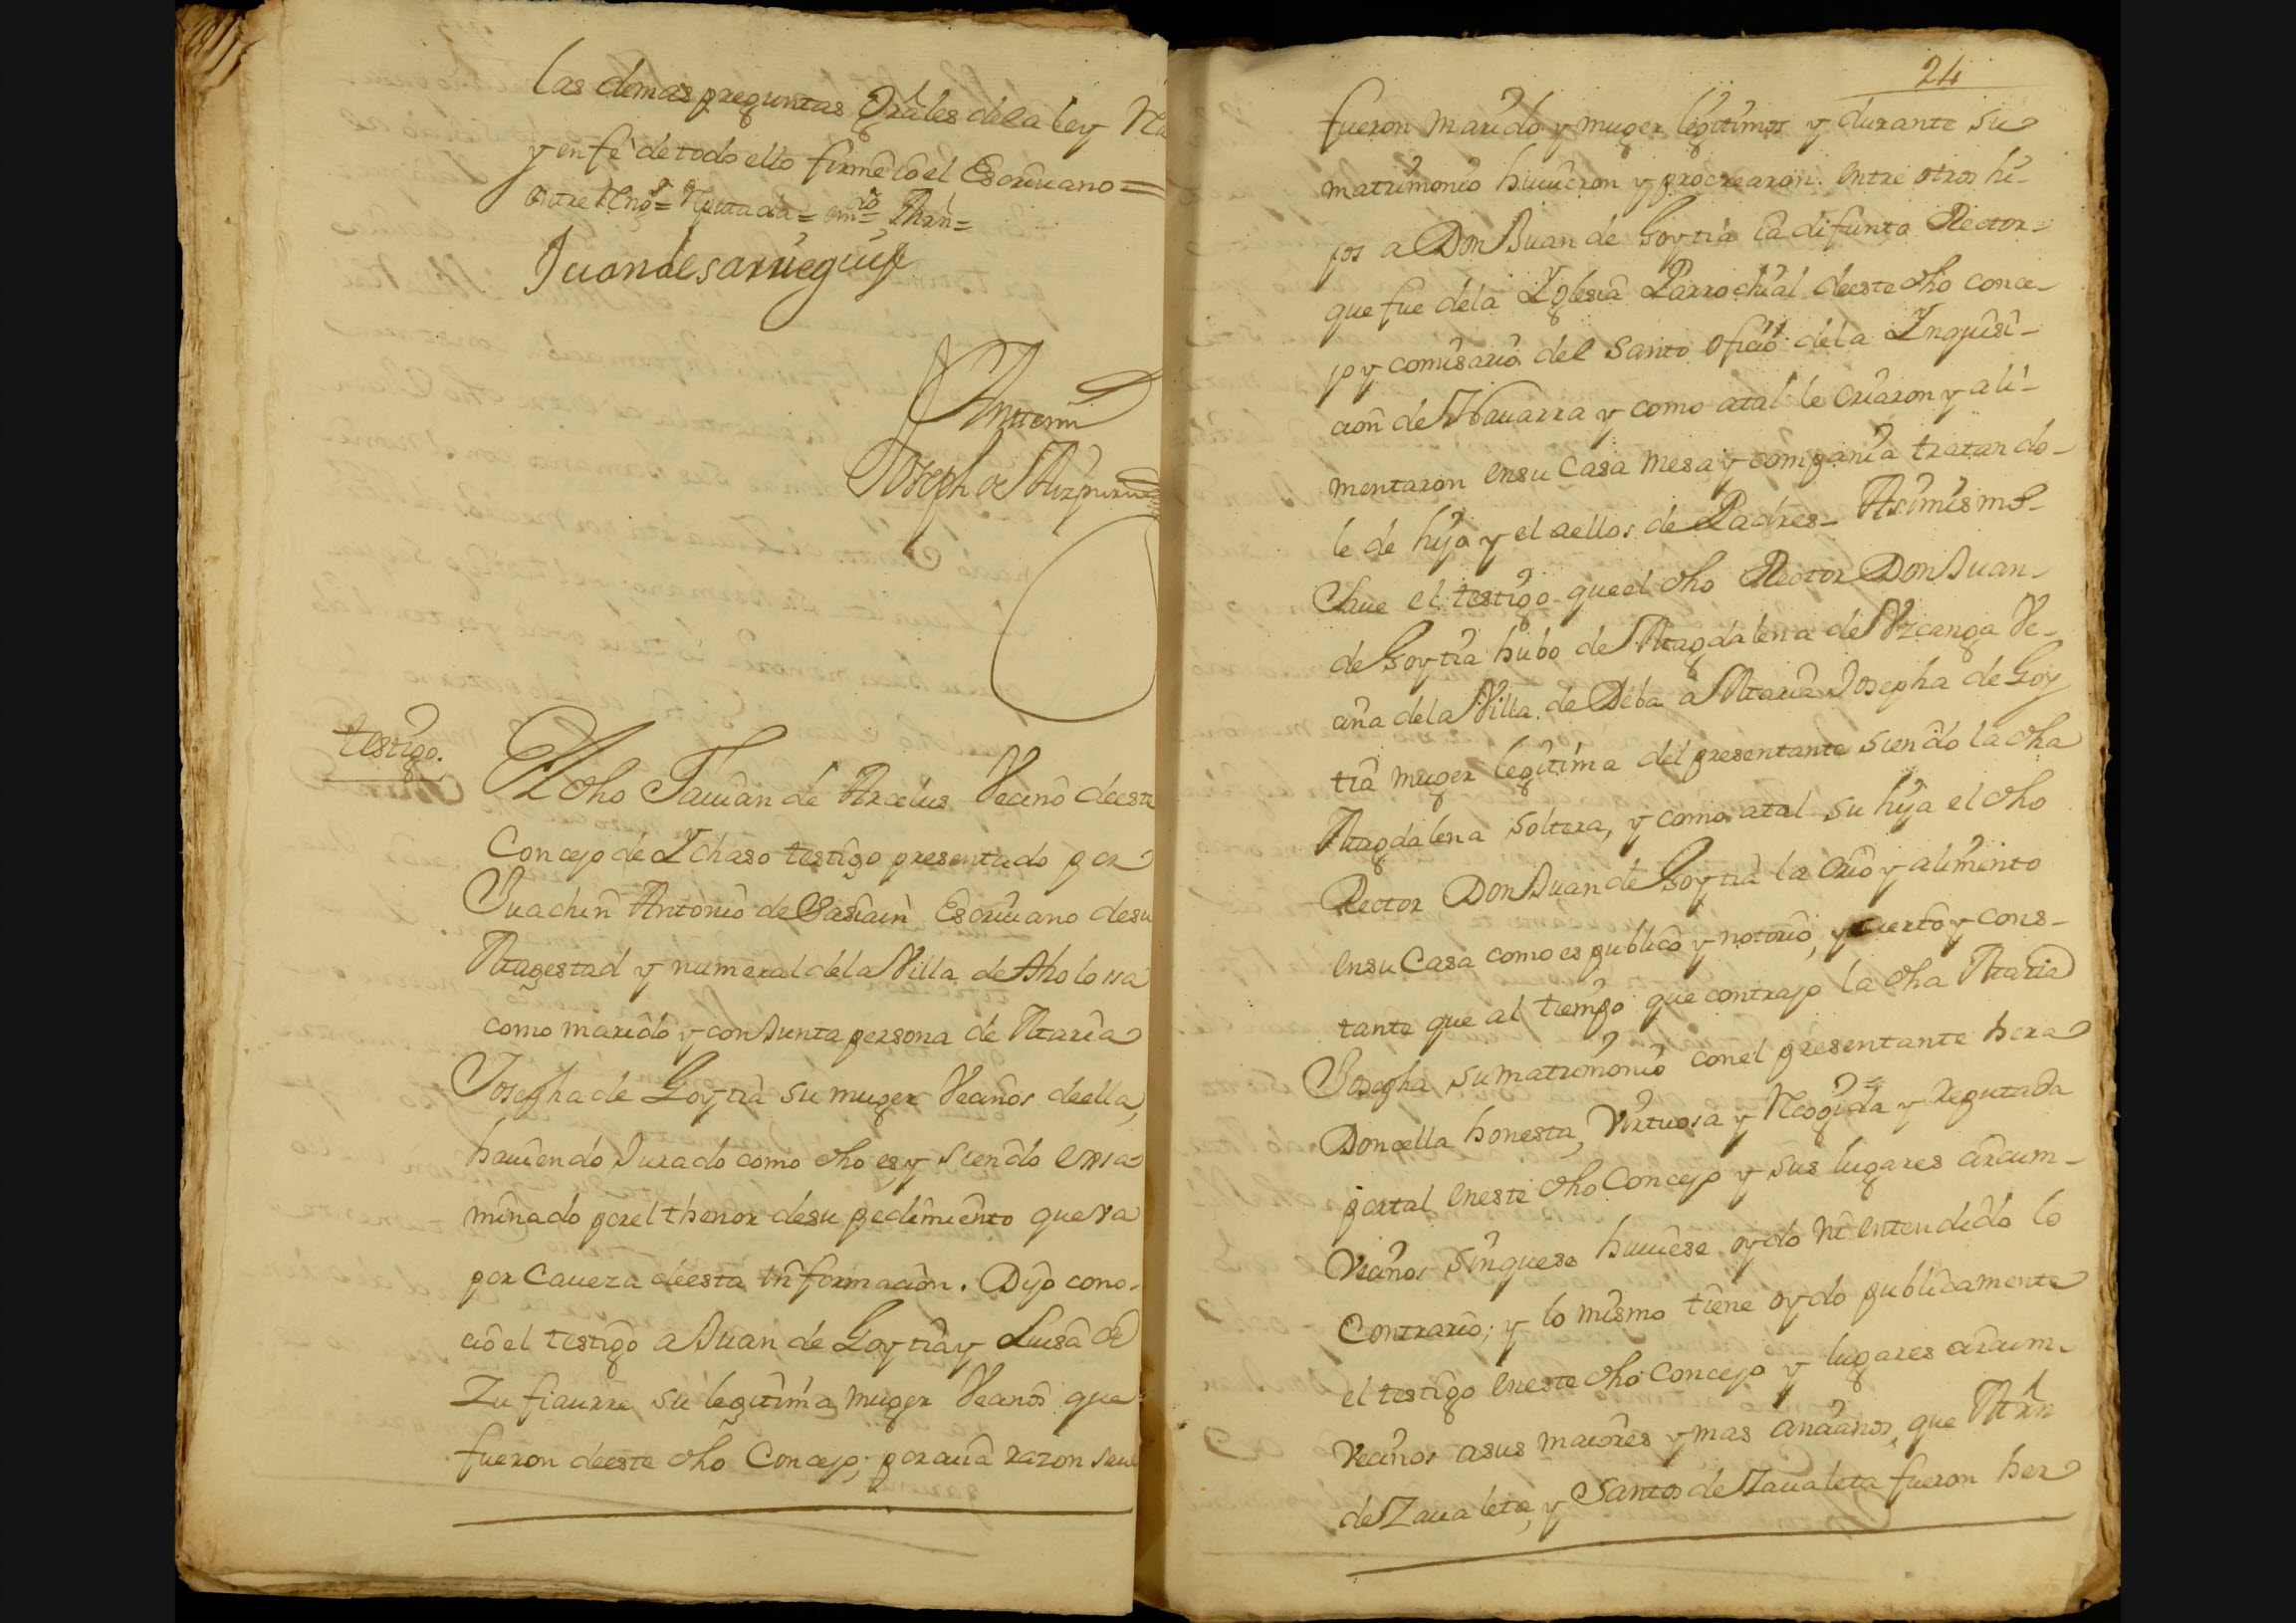 las demas preguntas Grâles dela ley
y en fê de todo ello firmê io el Escriuano=
entre Rengs= Reputada= emdo= Mrn=
Juan de Sarriegui
Antemi
Joseph de Aizpurua
testigo.
El dho Jauian de Arcelus Vecino deeste
Concejo de Ychaso testigo presentado por
Juachin Antonio de Sasiain Escriuano desu
Magestad y numeral dela Villa de tholossa
como marido y conJunta persona de Maria
Josepha de Goytia su muger Vecinos deella,
hauiendo Jurado como dho es, y siendo exsa-
minado por el thenor desu pedimiento que va
por Caueza deesta informacion. Dijo cono-
cio el testigo a Juan de Goytia y Luisa de
Zufiaurre su legitima muger Vecinos que
fueron deeste dho Concejo, por cuia razon saue
24
fueron marido y muger legitimos y durante su
matrimonio huuieron y procrearon entre otros hi-
jos a Don Juan de Goytia ia difunto Rector
que fue dela Yglesia Parrochial deeste dho conce-
jo y comisario del santo oficio dela Ynquisi-
cion de Nauarra y como atal le criaron y ali-
mentaron ensu Casa mesa y compania tratando-
le de hijo y el aellos de Padres- Asimismo
Saue el testigo que el dho Rector Don Juan
de Goytia hubo de Magdalena de Vzcanga Ve-
cina dela Villa de Deba a Maria Josepha de Goy
tia muger legitima del presentante siendo la dha
Magdalena soltera, y como atal su hija el dho
Rector Don Juan de Goytia la crio y alimento
ensu Casa como es publico y notorio, y cierto y cons-
tante que al tiempo que contrajo la dha Maria
Josepha su matrimonio con el presentante hera
Doncella honesta, Virtuosa y Recogida y Reputada
portal eneste dho Concejo y sus lugares circum-
Vecinos sinquese huuiese oydo ni entendido lo
Contrario; y lo mismo tiene oydo publicamente
el testigo eneste dho Concejo y lugares circum-
Vecinos asus maiores y mas ancianos, que Mrn
de Zaualeta, y Santos de Zaualeta fueron her